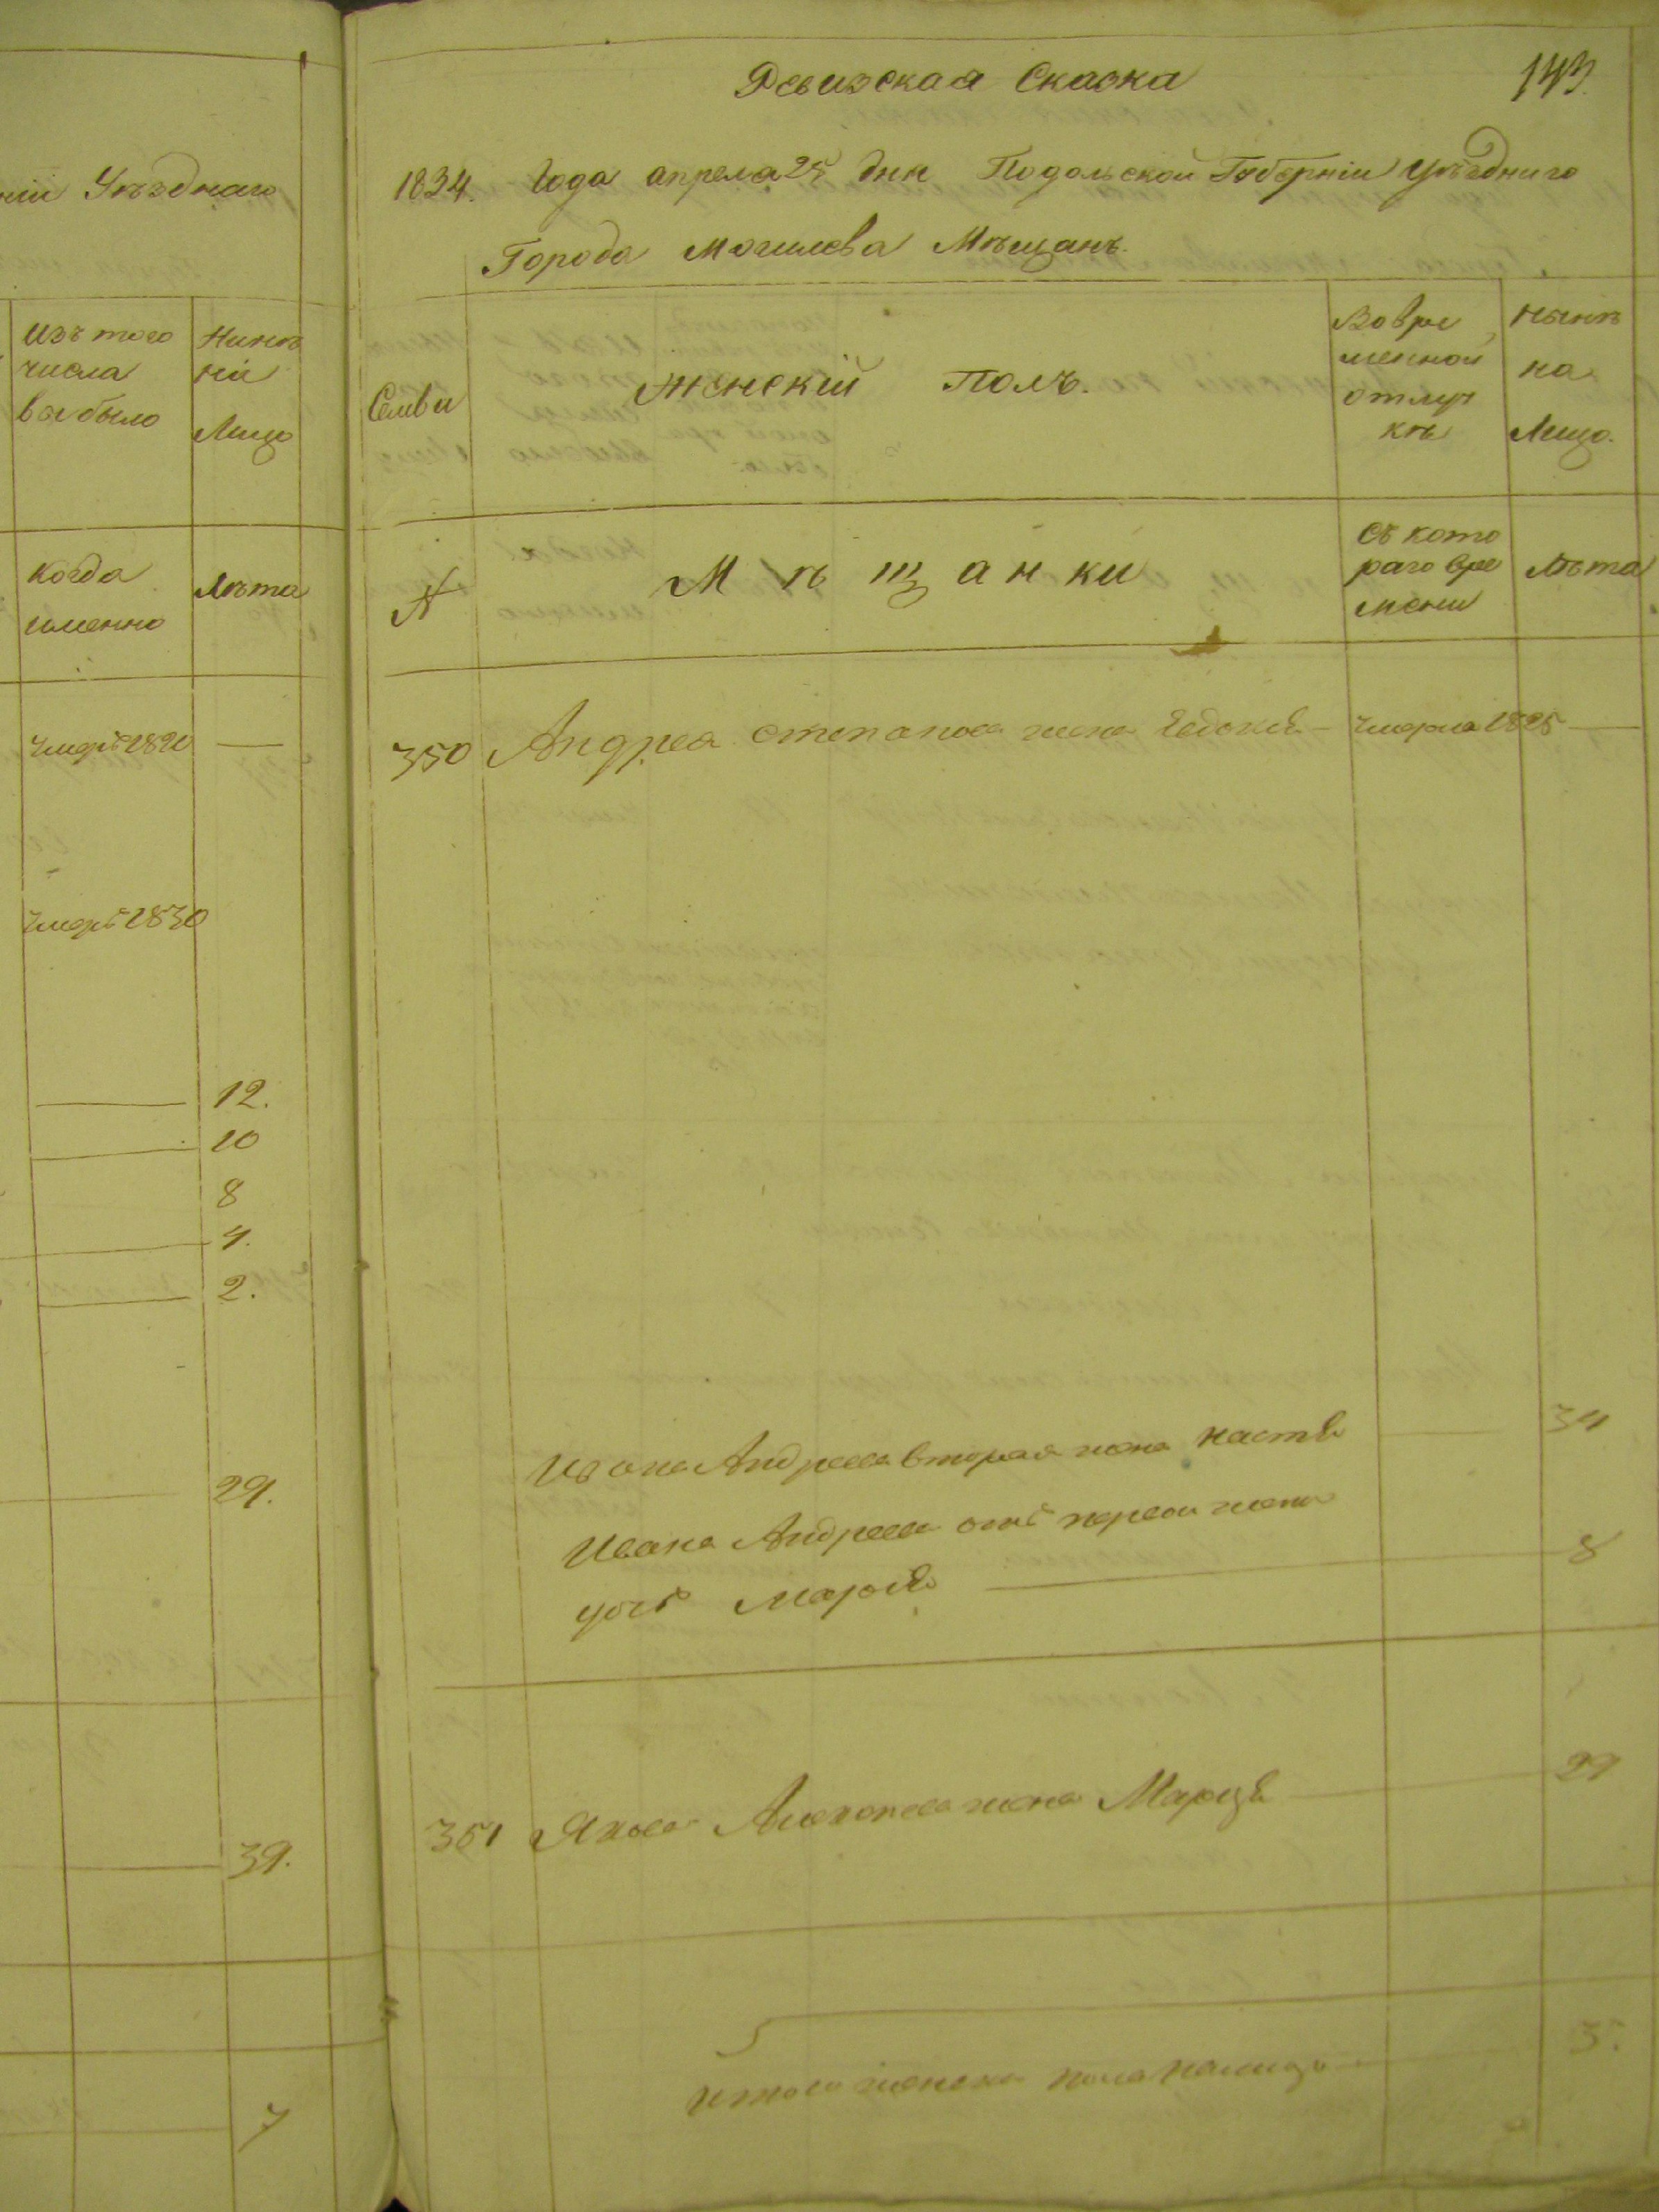 ніи Уѣзднаго
изъ того
числа
выбыло
Нинѣ
ни
Лицо
когда
именно
Лѣта
Умеръ 1821
Умеръ 1830
12.
10
8
4.
2.
29.
39.
7
Ревизская Сказка
143.
1834. Года апреля 25 дня Подольской Губерніи Уѣздниго
Города Могилева Мѣщанъ.
Семьи
женский Полъ.
Во вре
менной
отлуч
кѣ
нынѣ
на
Лицо.
N
Мѣщанки
Съ кото
раго вре
мени
Лѣта
350 Андрея Степанова жена Евдокия Умерла 1825
Ивана Андреева вторая жена Настя 34
Ивана Андреева отъ первой жени
Марія 8
351 Якова жена Марця
Итого женска пола налицо 3.